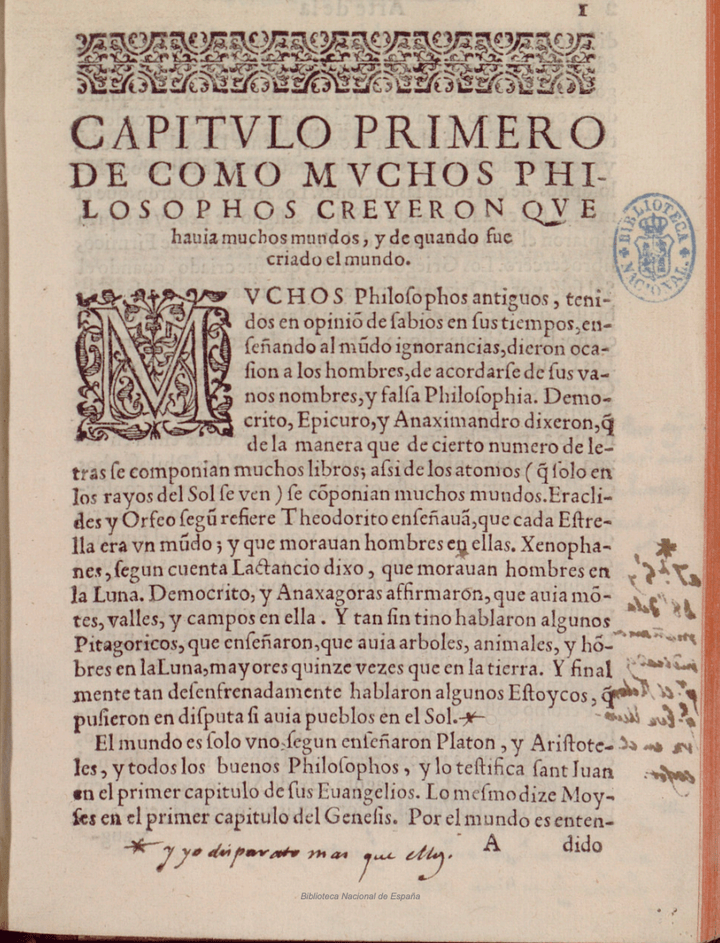 1
CAPITVLO PRIMERO
DE COMO MVCHOS PHI-
LOSOPHOS CREYERON QVE
hauia muchos mundos, y de quando fue
criado el mundo.
MVCHOS Philoſophos antiguos, teni-
dos en opiniõ de ſabios en ſus tiempos, en-
ſeñando al mũdo ignorancias, dieron oca-
ſion a los hombres, de acordarſe de ſus va-
nos nombres, y falſa Philoſophia. Demo-
crito, Epicuro, y Anaximandro dixeron, q̃
de la manera que de cierto numero de le-
tras ſe componian muchos libros; aſsi de los atomos ( q̃ ſolo en
los rayos del Sol ſe ven ) ſe cõponian muchos mundos. Eracli-
des y Orfeo ſegũ refiere Theodorito enſeñauã, que cada Eſtre-
lla era vn mũdo; y que morauan hombres en ellas. Xenopha-
nes, ſegun cuenta Lactancio dixo, que morauan hombres en
la Luna. Democrito, y Anaxagoras affirmaron, que auia mõ-
tes, valles, y campos en ella. Y tan ſin tino hablaron algunos
Pitagoricos, que enſeñaron, que auia arboles, animales, y hõ-
bres en la Luna, mayores quinze vezes que en la tierra. Y final
mente tan deſenfrenadamente hablaron algunos Eſtoycos, q̃
puſieron en diſputa ſi auia pueblos en el Sol.*
El mundo es ſolo vno, ſegun enſeñaron Platon, y Ariſtote-
les, y todos los buenos Philoſophos, y lo teſtifica ſant Iuan
en el primer capitulo de ſus Euangelios. Lo meſmo dize Moy-
ſes en el primer capitulo del Geneſis. Por el mundo es enten-
A dido
* y yo disparato mas que ellos.
BIBLIOTECA NACIONAL
Biblioteca Nacional de España